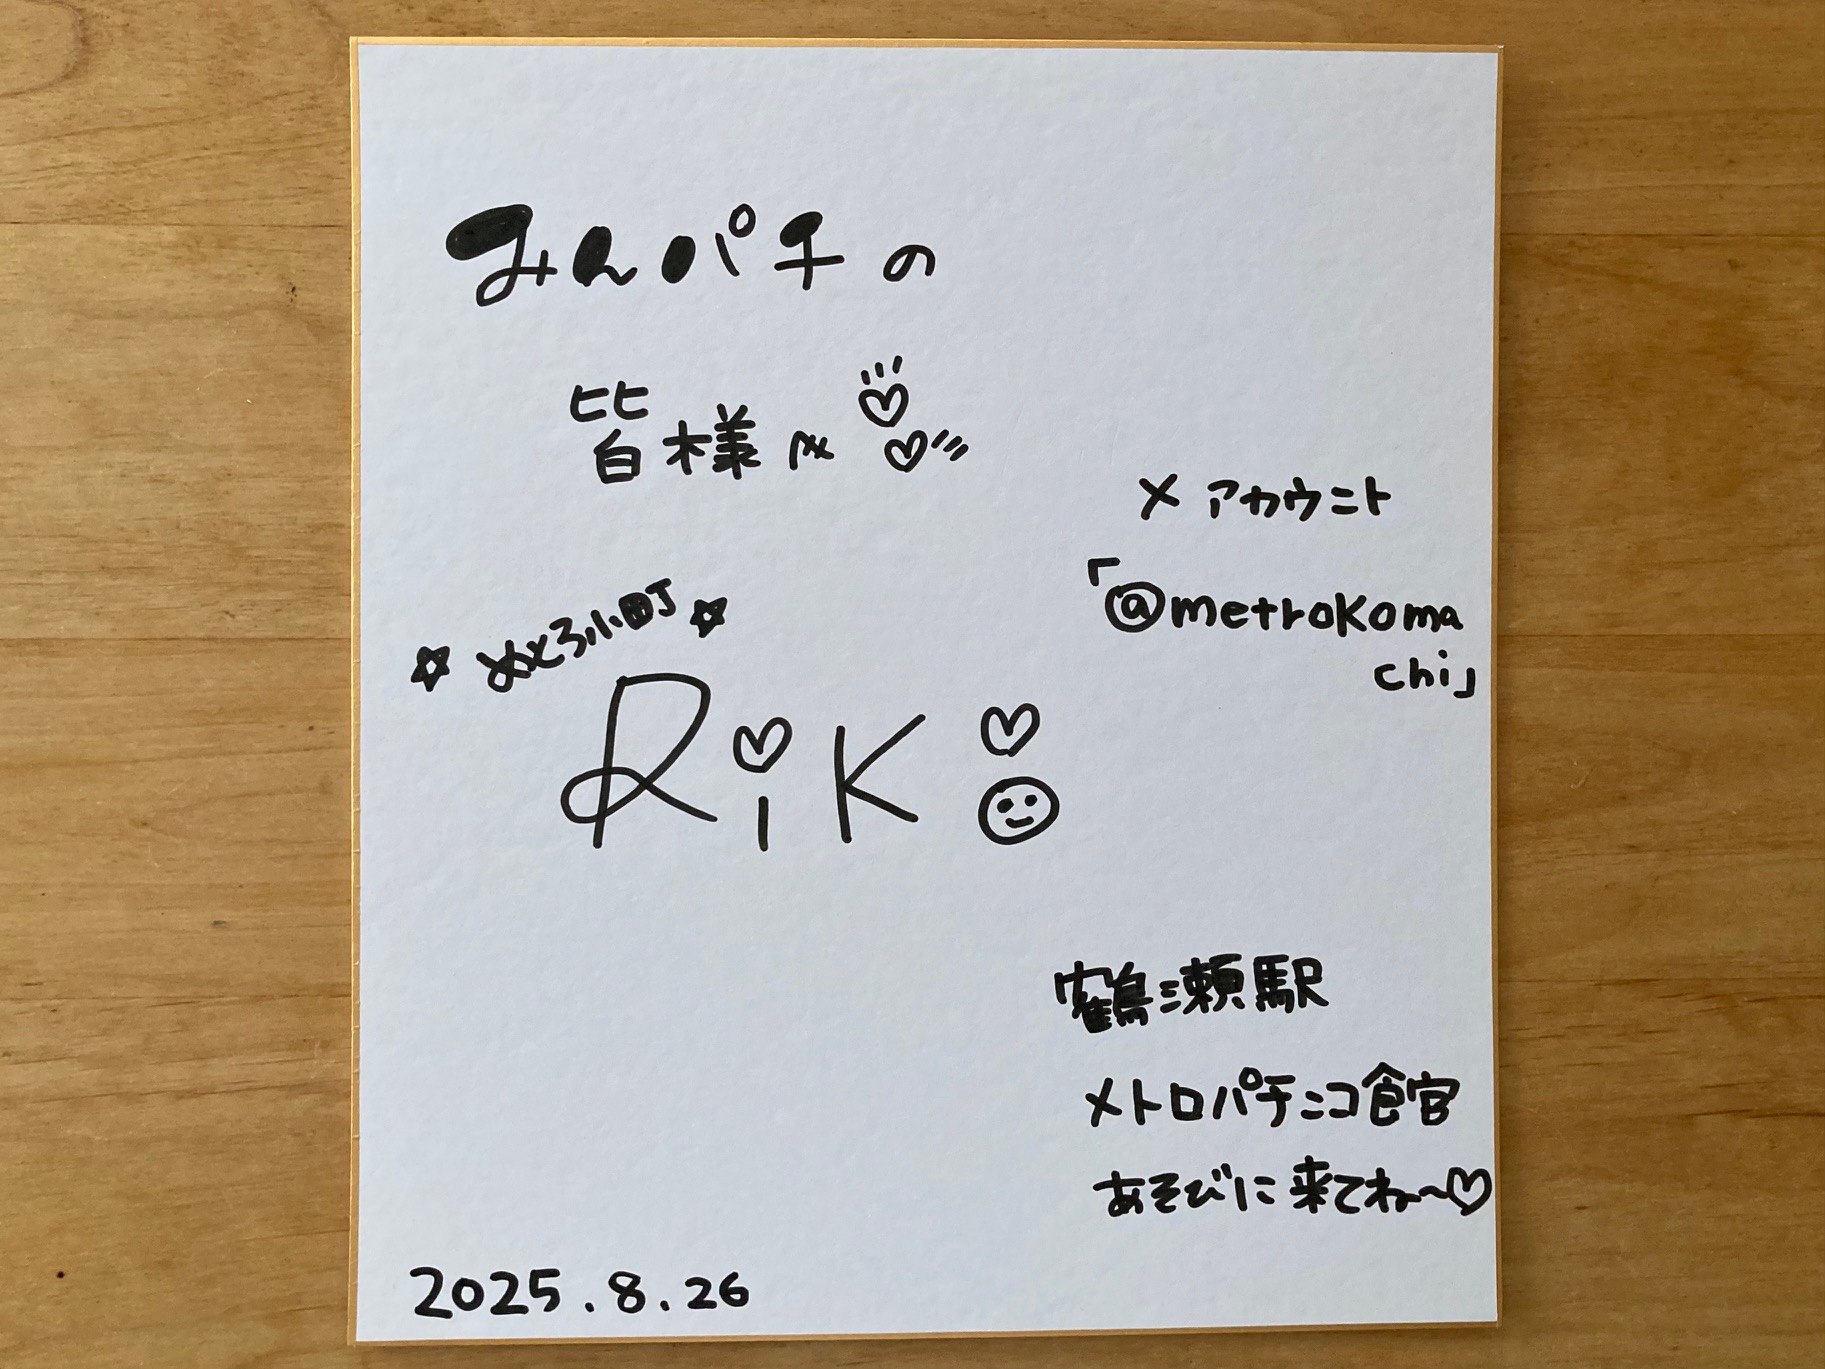 みんパチの
皆様へ♡♡
Xアカウント
「@metrokoma
chi」
☆めとろ小町☆
Riko
鶴瀬駅
メトロパチンコ食官
あそびに来てね〜♡
2025.8.26